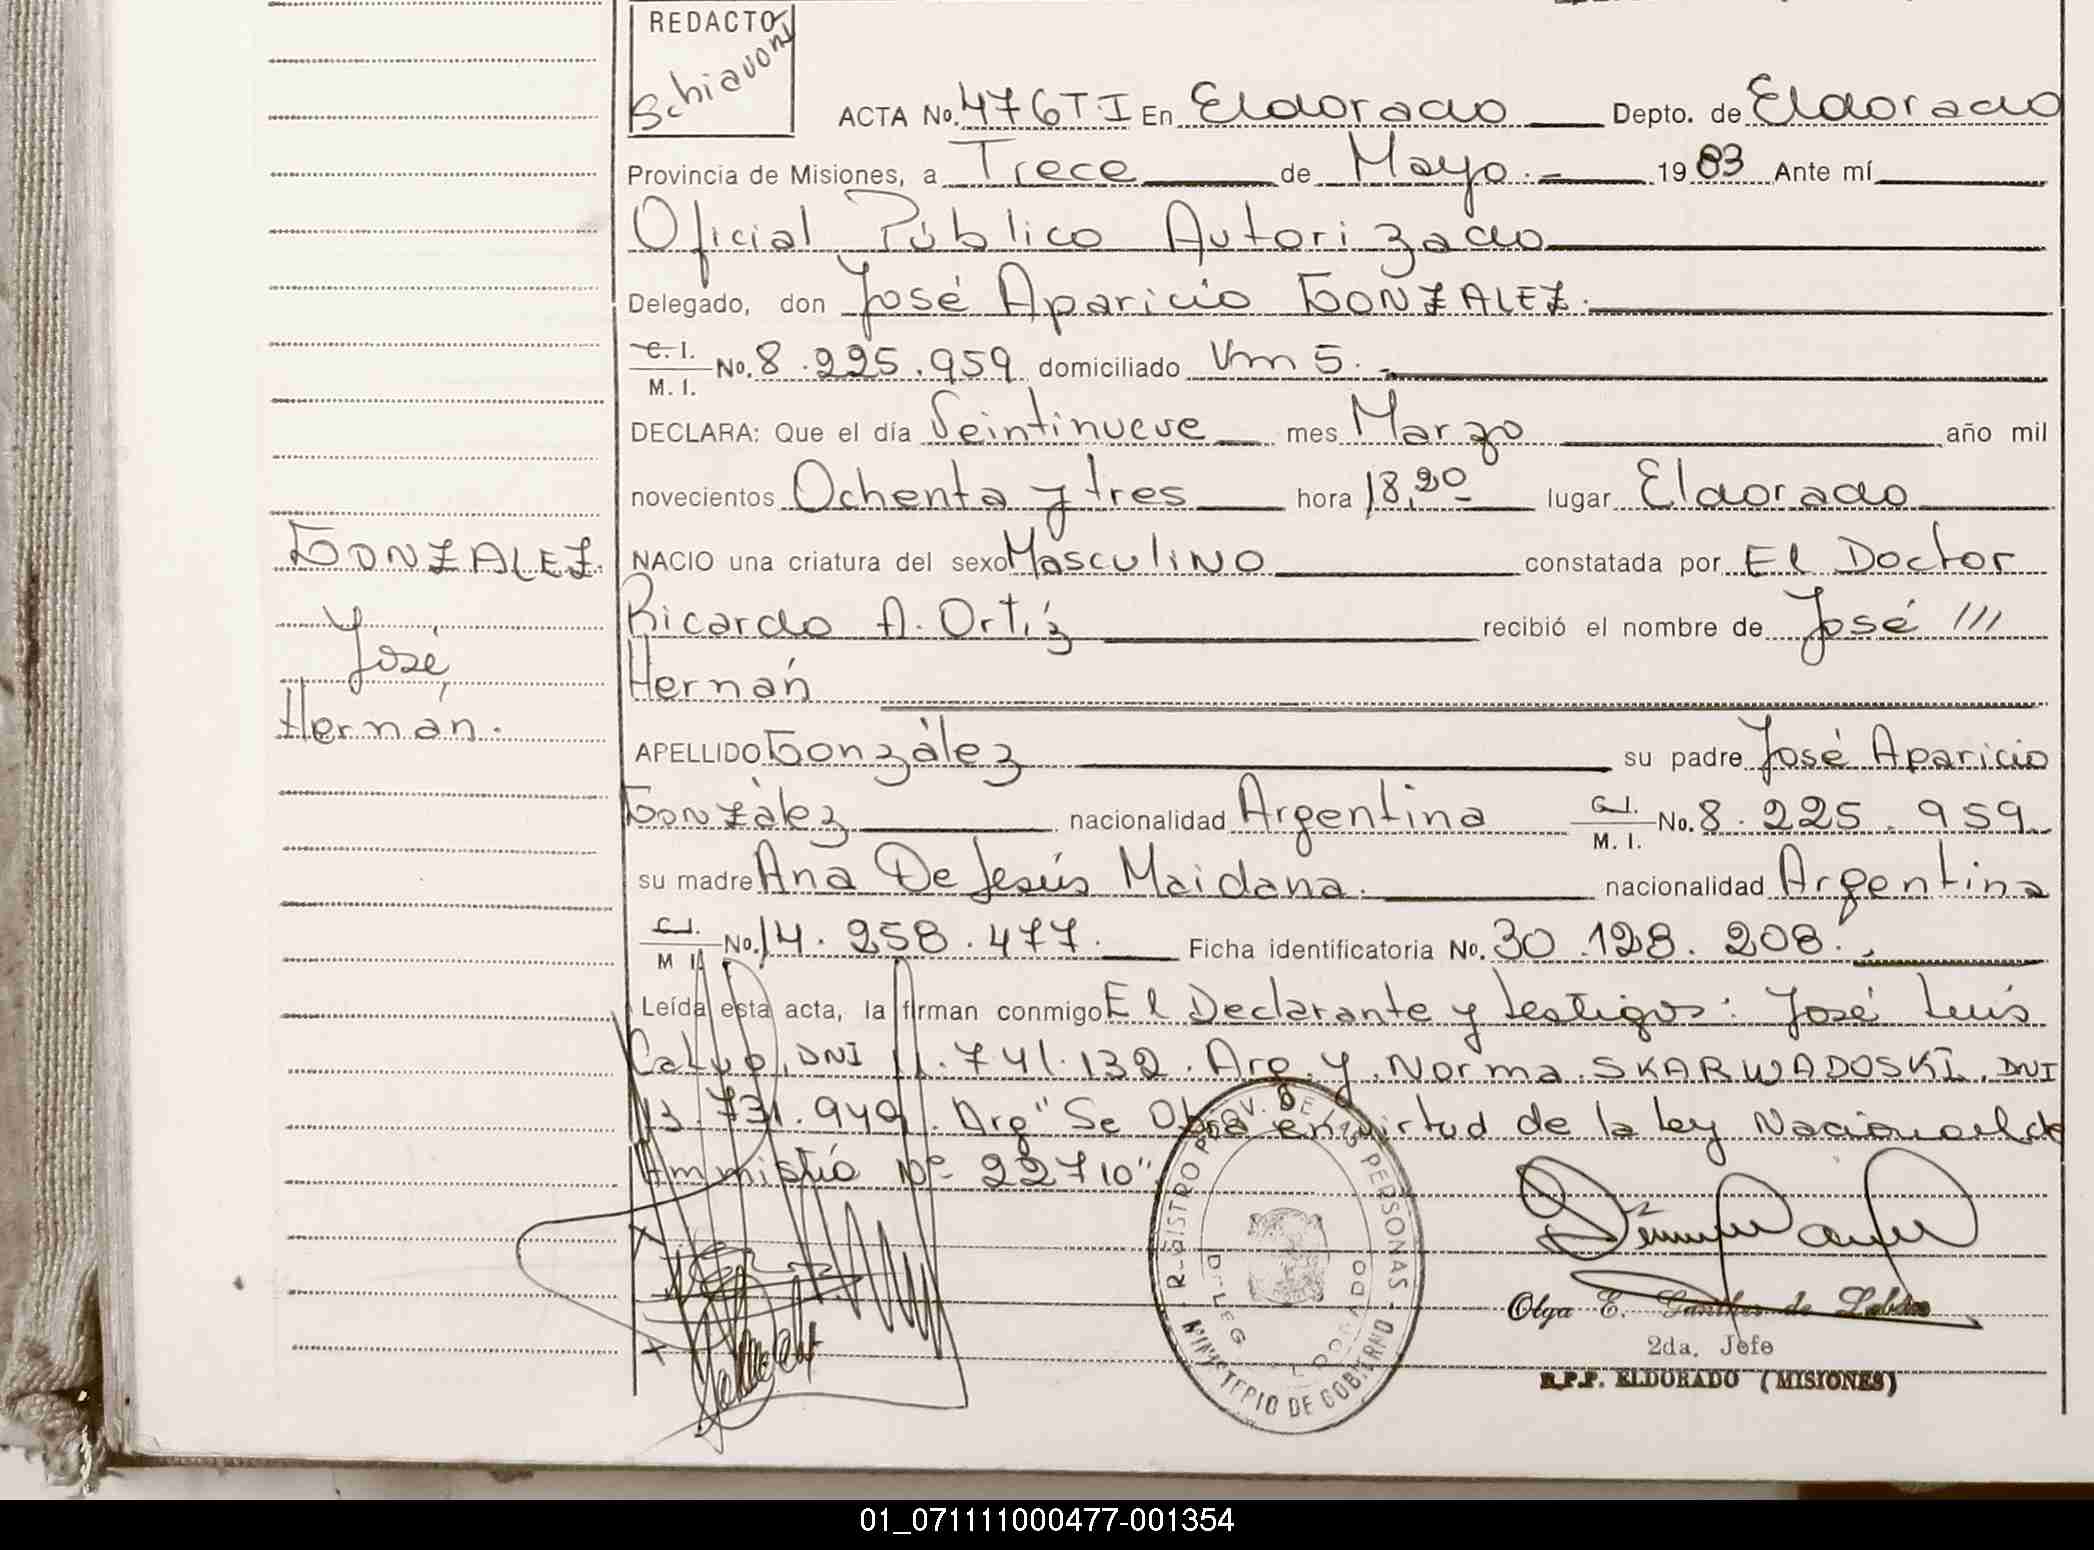 REDACTO
Schiavoni
ACTA No. 476 T·I En Eldorado Depto. de Eldorado
Provincia de Misiones, a Trece de Mayo.- 1983 Ante mí
Oficial Público Autorizado
Delegado, don José Aparicio GONZALEZ.
C. I.
M. I. No. 8.225.959 domiciliado Km 5.
DECLARA: Que el día Veintinueve mes Marzo año mil
novecientos Ochenta y tres hora 18,20 lugar Eldorado
NACIO una criatura del sexo Masculino constatada por El Doctor
Ricardo A. Ortíz recibió el nombre de José ///
Hernán
GONZALEZ.
José
Hernán.
APELLIDO González su padre José Aparicio
González nacionalidad Argentina C. I. M. I. No. 8.225.959
su madre Ana De Jesús Maidana. nacionalidad Argentina
C. I. M. I. No. 14.258.477. Ficha identificatoria No. 30.128.208.
Leída esta acta, la firman conmigo El Declarante y testigos: José Luís
Calvo. DNI 11.741.132. Arg. y Norma SKARWADOSKI. DNI
13.731.949. Arg "Se Obra en virtud de la ley Nacional de
Ammistío Nº 22710"
REGISTRO PROV. DE LAS PERSONAS
MINISTERIO DE GOBIERNO
Olga E. Gunther de
2da. Jefe
R.P.P. ELDORADO (MISIONES)
01_071111000477-001354